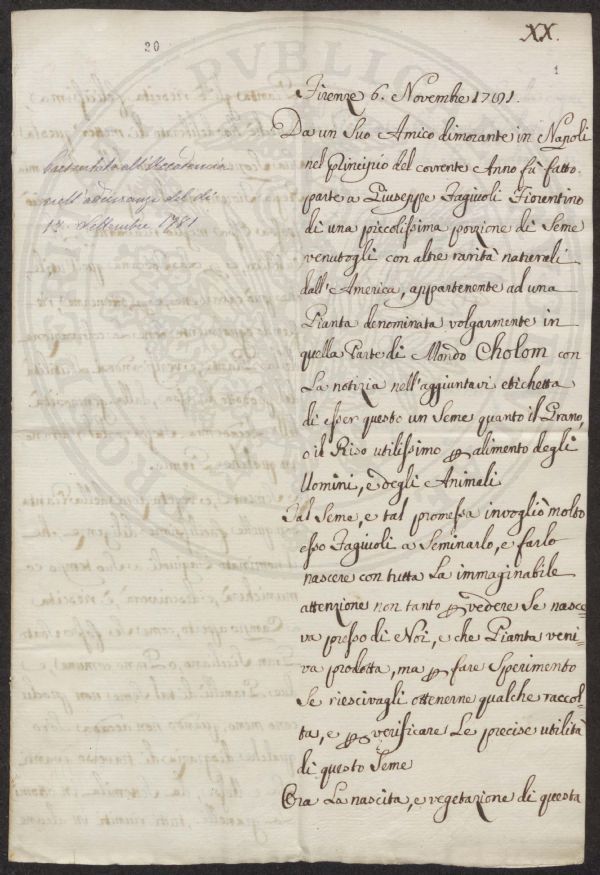 XX.
20
1
Firenze 6. Novembre 1781.
Da un Suo Amico dimorante in Napoli
nel principio del corrente Anno fù fatto
parte a Giuseppe Fagiuoli Fiorentino
di una piccolissima porzione di Seme
venutogli con altre rarità naturali
dall'America, appartenente ad una
Pianta denominata volgarmente in
quella Parte di Mondo Cholom con
La notizia nell'aggiuntavi etichetta
di esser questo un Seme quanto il Grano,
o il Riso utilissimo p alimento degli
Uomini, e degli Animali
Tal Seme, e tal promessa invogliò molto
esso Fagiuoli a Seminarlo, e farlo
nascere con tutta La immaginabile
attenzione non tanto p vedere Se nasce-
va presso di Noi, e che Pianta veni-
va prodotta, ma p fare Sperimento
Se riescivagli ottenerne qualche raccol-
ta, e p verificare Le precise utilità
di questo Seme
Ora La nascita, e vegetazione di questa
Presentata all'Accademia
nell'adunanza del dì
Settembre 1781
PVBLICA